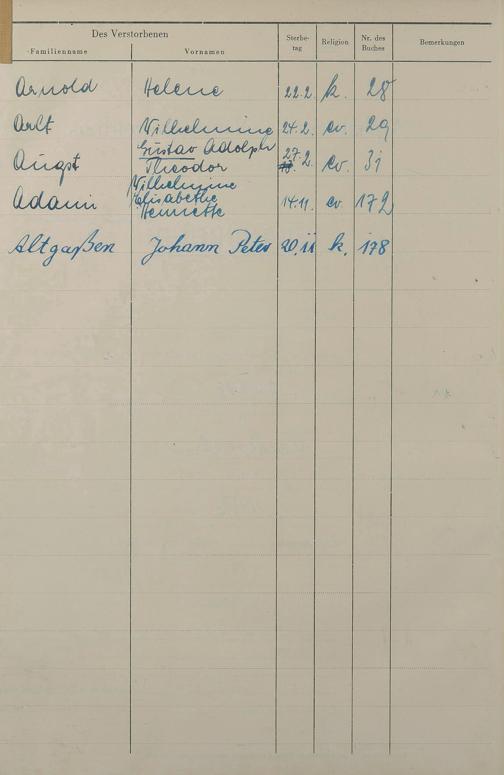 Des Verstorbenen
Familienname Vornamen Sterbe-tag Religion Nr. des Buches Bemerkungen
Arnold Helene 22.2. k. 28
Arlt Wilhelmine 24.2. ev. 29
Augst Gustav Adolph Theodor 27.2. ev. 31
Adami Wilhelmine Elisabethe Henriette 14.11. ev 172
Altgaßen Johann Peter 20.11 k. 178